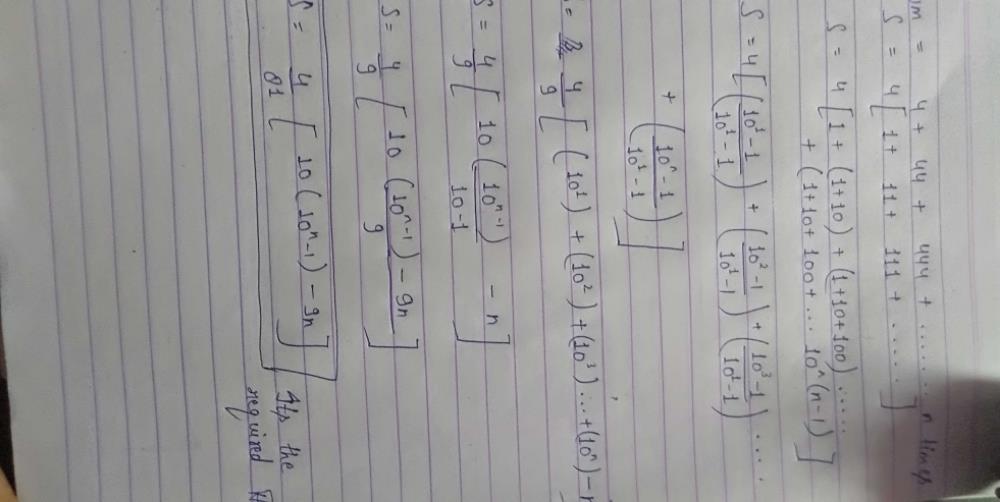 um = 4 + 44 + 444 + ........ n times
S = 4[1+ 11+ 111 + ......]
S = 4[1+ (1+10) + (1+10+100) .....
+ (1+10+100+ ... 10^(n-1)]
S = 4[(10¹-1)/(10¹-1) + (10²-1)/(10¹-1) + (10³-1)/(10¹-1) ....
+ (10ⁿ-1)/(10¹-1)]
= 4/9 [(10¹) + (10²) + (10³)...+(10ⁿ)-n
S = 4/9 [10 (10ⁿ⁻¹)/10-1 - n]
S = 4/9 [10 (10ⁿ⁻¹) - 9n/9]
S = 4/81 [10(10ⁿ-1) - 9n]
the
required